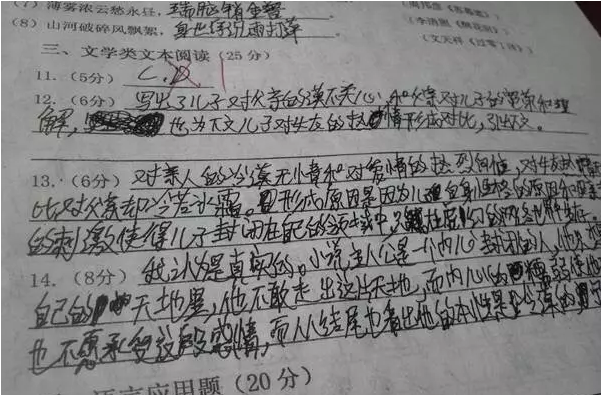 (7) 薄雾浓云愁永昼，瑞脑销金兽。
(8) 山河破碎风飘絮，身世浮沉雨打萍。
三、文学类文本阅读（25分）
11.（5分） C. D
12.（6分）写出了儿子对父亲的漠不关心，和父亲对儿子的宽容和理
解，也为下文儿子对女友的热情形成对比，引出下文。
13.（6分）对亲人的冷漠无情和对爱情的热烈向往，对女友热情
比对父亲却冷若冰霜。形成原因是因为儿子自身性格的原因和
的刺激使得儿子封闭在自己的领域中，
14.（8分）我认为是真实的。小说主人公是一个内心封闭的人，他只
自己的天地里，他不敢走出这片天地，而内心的使他
也不愿承受这段感情，而从小结尾也看出他的本性是冷漠的
语言应用题（20分）